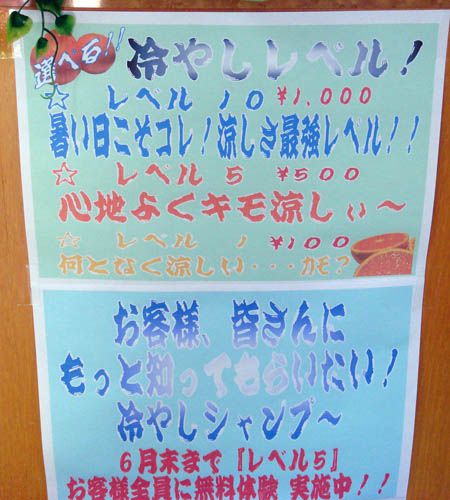 選べる!! 冷やしレベル!
☆ レベル 10 ¥1,000
暑い日こそコレ!涼しさ最強レベル!!
☆ レベル 5 ¥500
心地よくキモ涼しぃ～
☆ レベル 1 ¥100
何となく涼しい・・・カモ?
お客様、皆さんに
もっと知ってもらいたい!
冷やしシャンプ～
6月末まで『レベル5』
お客様全員に無料体験 実施中!!